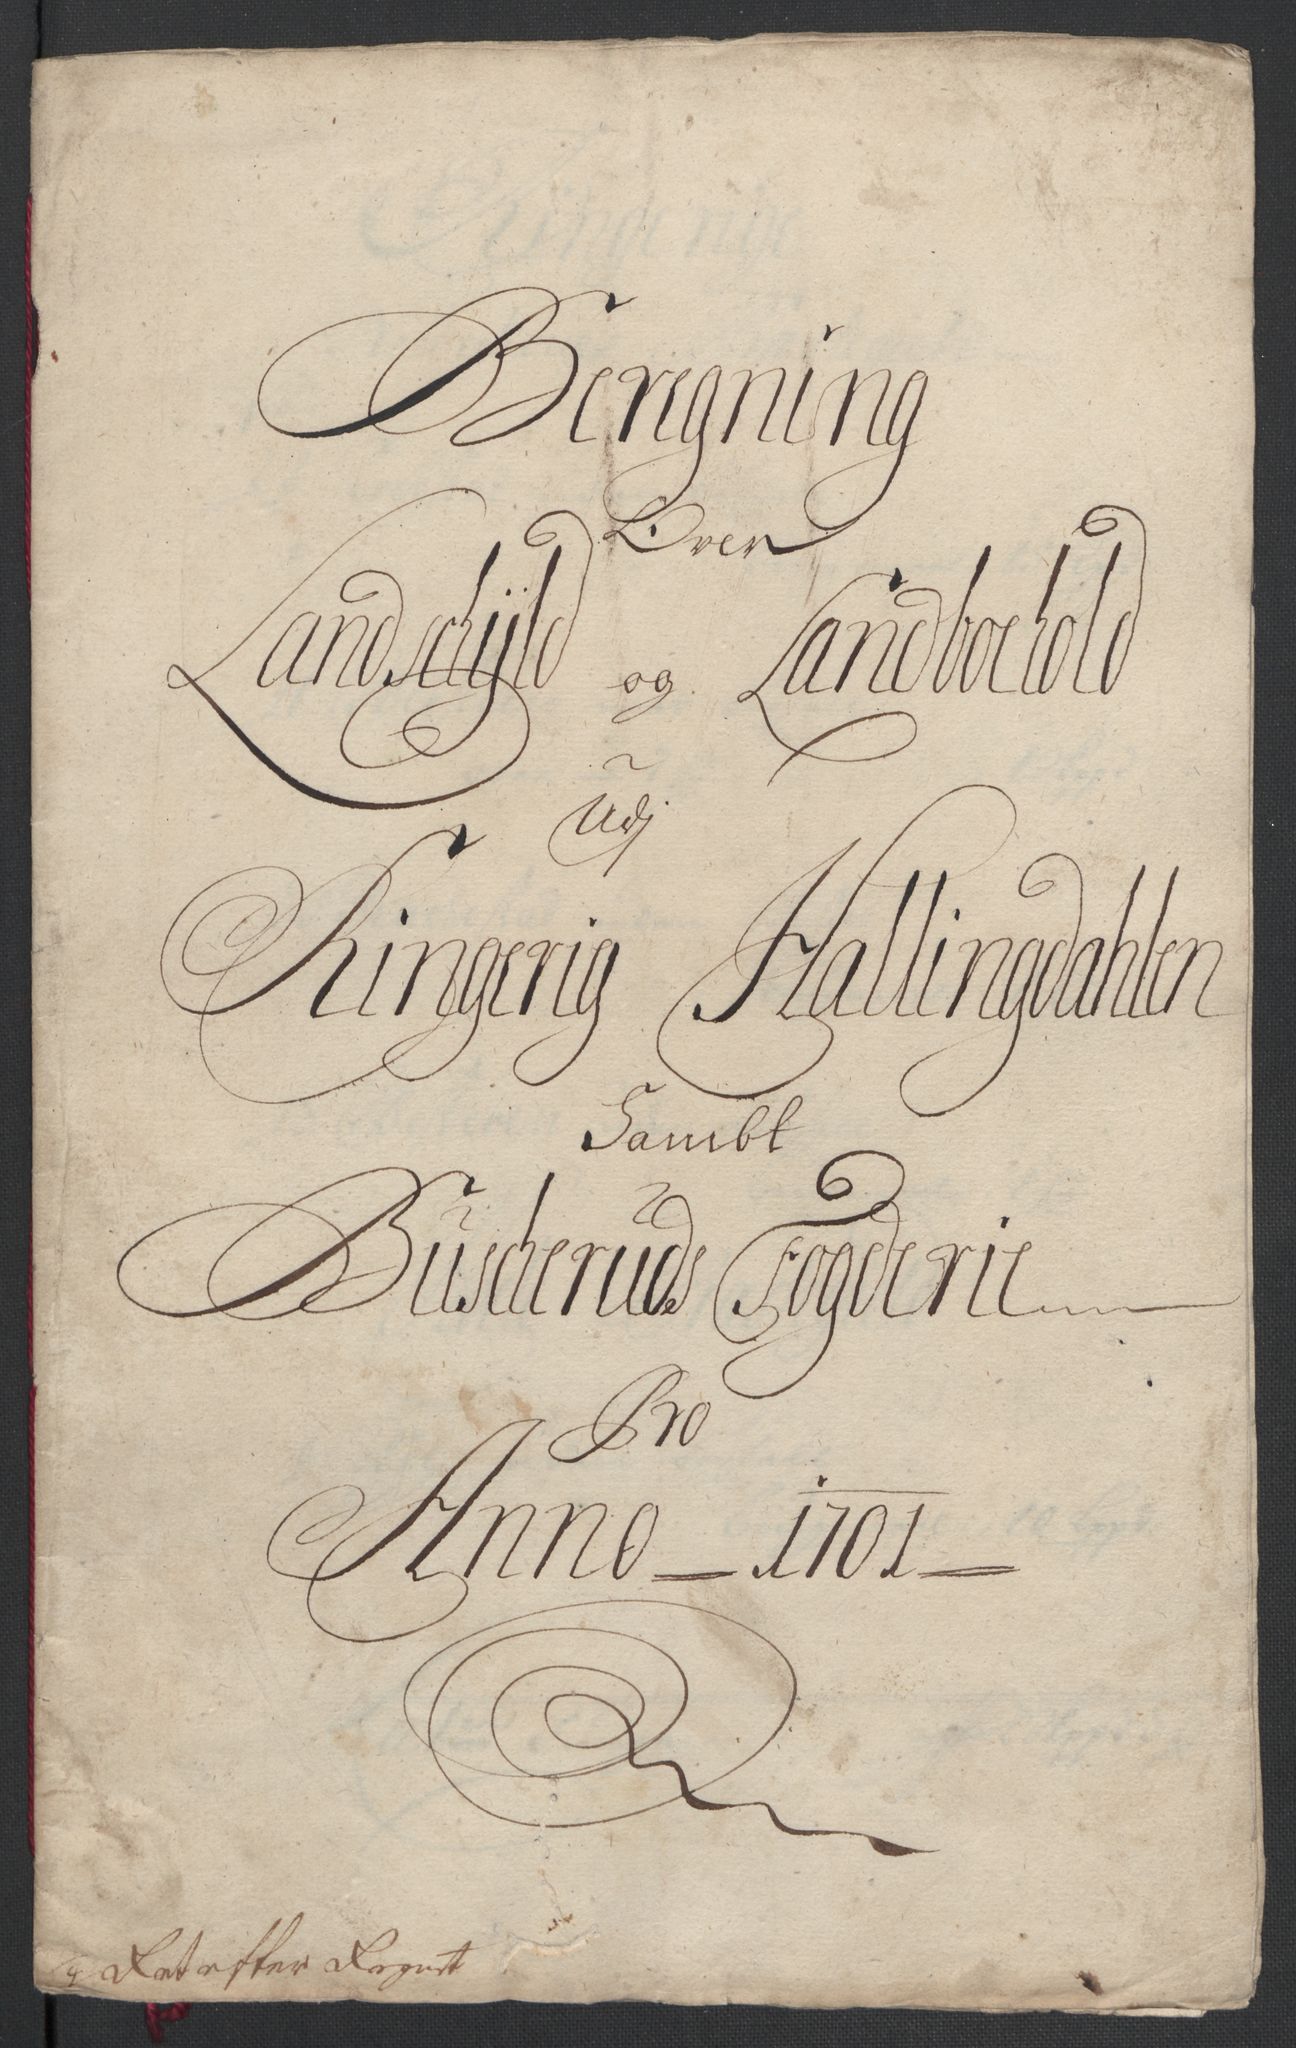 Beregning
Over
Landschÿld og Landboehold
Udj
Ringerig Hallingdahlen
Sambt
Buscheruds Fogderie
Pro
Anno 1701
Ret efter Regnet